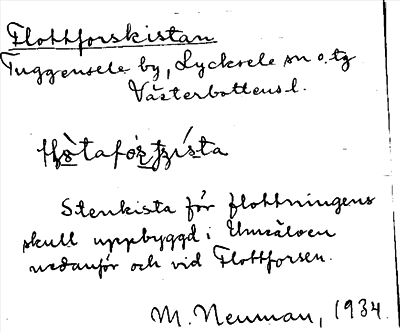 Flottforskistan
Tuggensele by, Lycksele sn o. tg
Västerbottens l.
Stenkista för flottningens
skull uppbyggd i Umeälven
nedanför och vid Flottforsen.
M. Neuman, 1934.